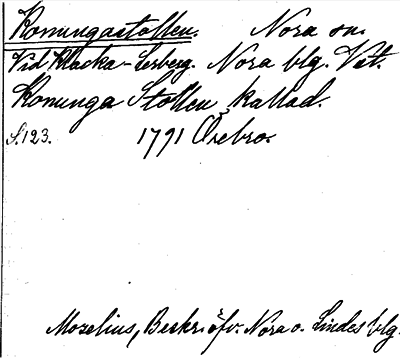 Konungastollen. Nora sn.
Vid Klacka-Lerberg. Nora blg. Vst.
Konunga Stollen kallad.
S. 123. 1791 Örebro.
Mozelius, Beskr. öfv. Nora o. Lindes blg.